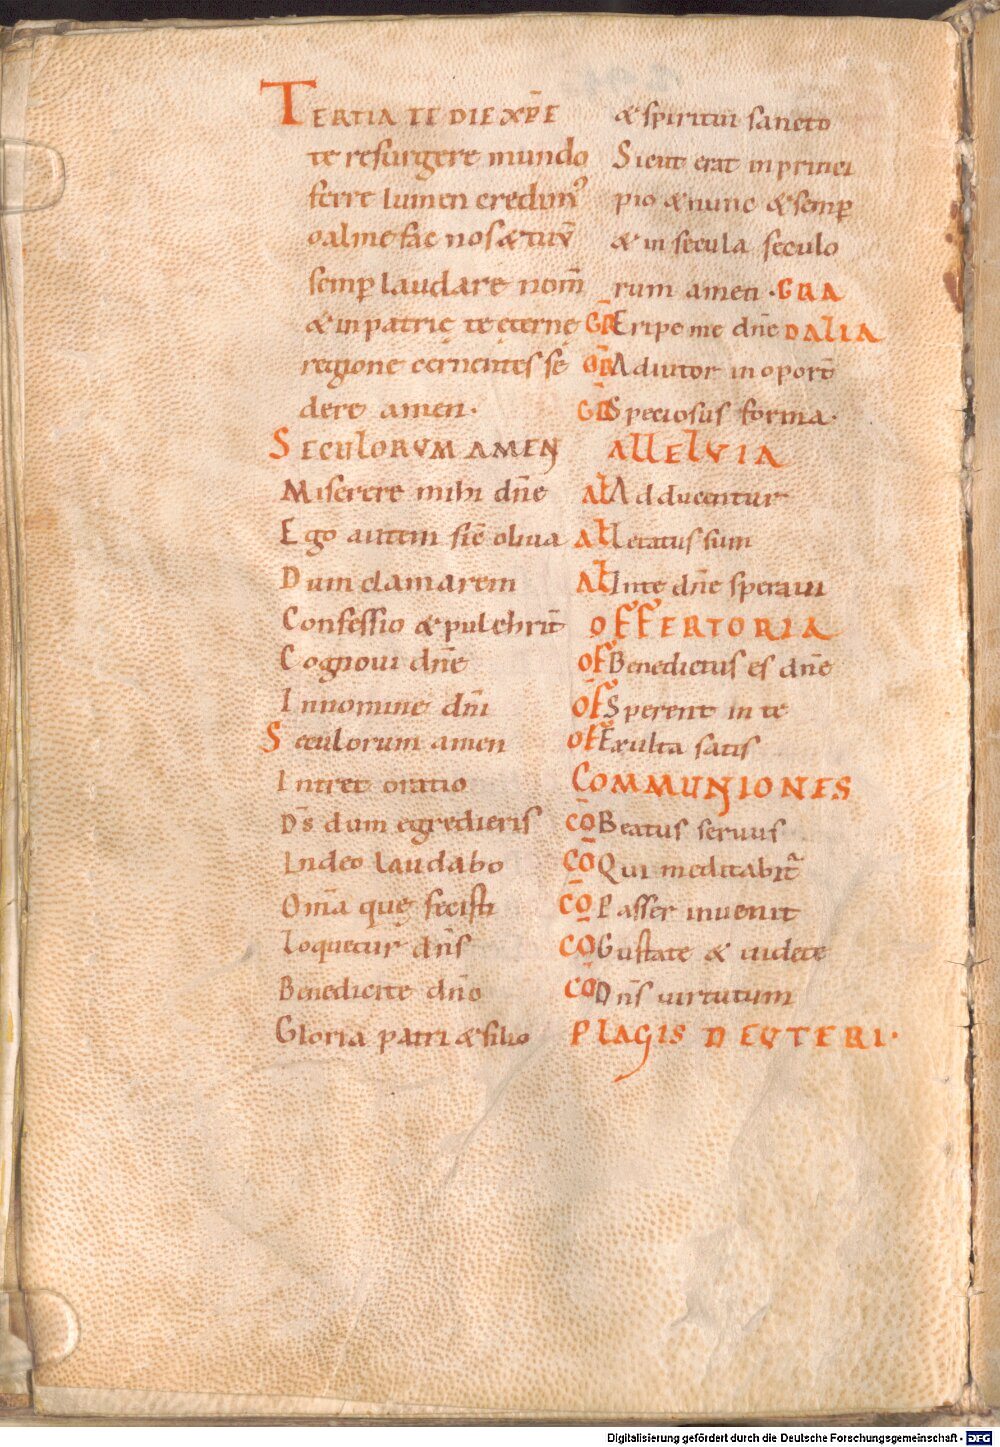 TERTIA TE DIE XP̄E
te resurgere mundo
ferre lumen credim᾽
o alme fac nos & tuū
semp̄ laudare nom̄
& in patrie te eterne
regione cernentes se
dere amen·
SECULORVM AMEN
Miserere mihi dn̄e
Ego autem sic̄ oliua
Dum clamarem
Confessio & pulchrit̄
Cognoui dn̄e
In nomine dn̄i
Seculorum amen
Intret oratio
Ds̄ dum egredieris
In deo laudabo
Om̄a quę fecisti
Loquetur dn̄s
Benedicite dn̄o
Gloria patri & filio
& spiritui sancto
Sicut erat in princi
pio & nunc & semp̄
& in secula seculo
rum amen · GRA
GR̄ Eripe me dn̄e DALIA
GR̄ Adiutor in oport̄
GR̄ Speciosus forma·
ALLELVIA
AL̄ Adducentur
AL̄ Letatus sum
AL̄ In te dn̄e speraui
OFFERTORIA
OF̄ Benedictus es dn̄e
OF̄ Sperent in te
OF̄ Exulta satis
COMMUNIONES
CŌ Beatus seruus
CŌ Qui meditabit᷑
CŌ Passer inuenit
CŌ Gustate & uidete
CŌ Dn̄s uirtutum
PLAGIS DEUTERI·
Digitalisierung gefördert durch die Deutsche Forschungsgemeinschaft - DFG